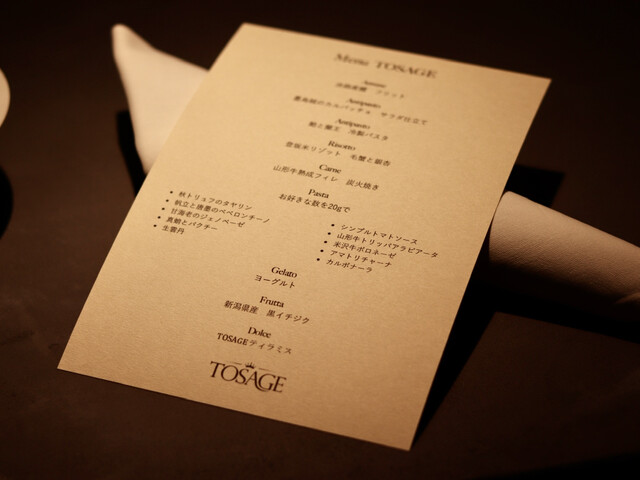 Menu TOSAGE
フリット
Antipasto
のカルパッチョ サラダ仕立て
Antipasto
冷製パスタ
Risotto
雪板米リゾット 毛蟹と銀杏
Carne
山形牛熟成フィレ 炭火焼き
Pasta
お好きな数を20gで
秋トリュフのタヤリン
帆立と唐墨のペペロンチーノ
甘海老のジェノベーゼ
真鯛とパクチー
生雲丹
シンプルトマトソース
山形牛トリッパアラビアータ
米沢牛ボロネーゼ
アマトリチャーナ
カルボナーラ
Gelato
ヨーグルト
Frutta
新潟県産 黒イチジク
Dolce
TOSAGEティラミス
TOSAGE